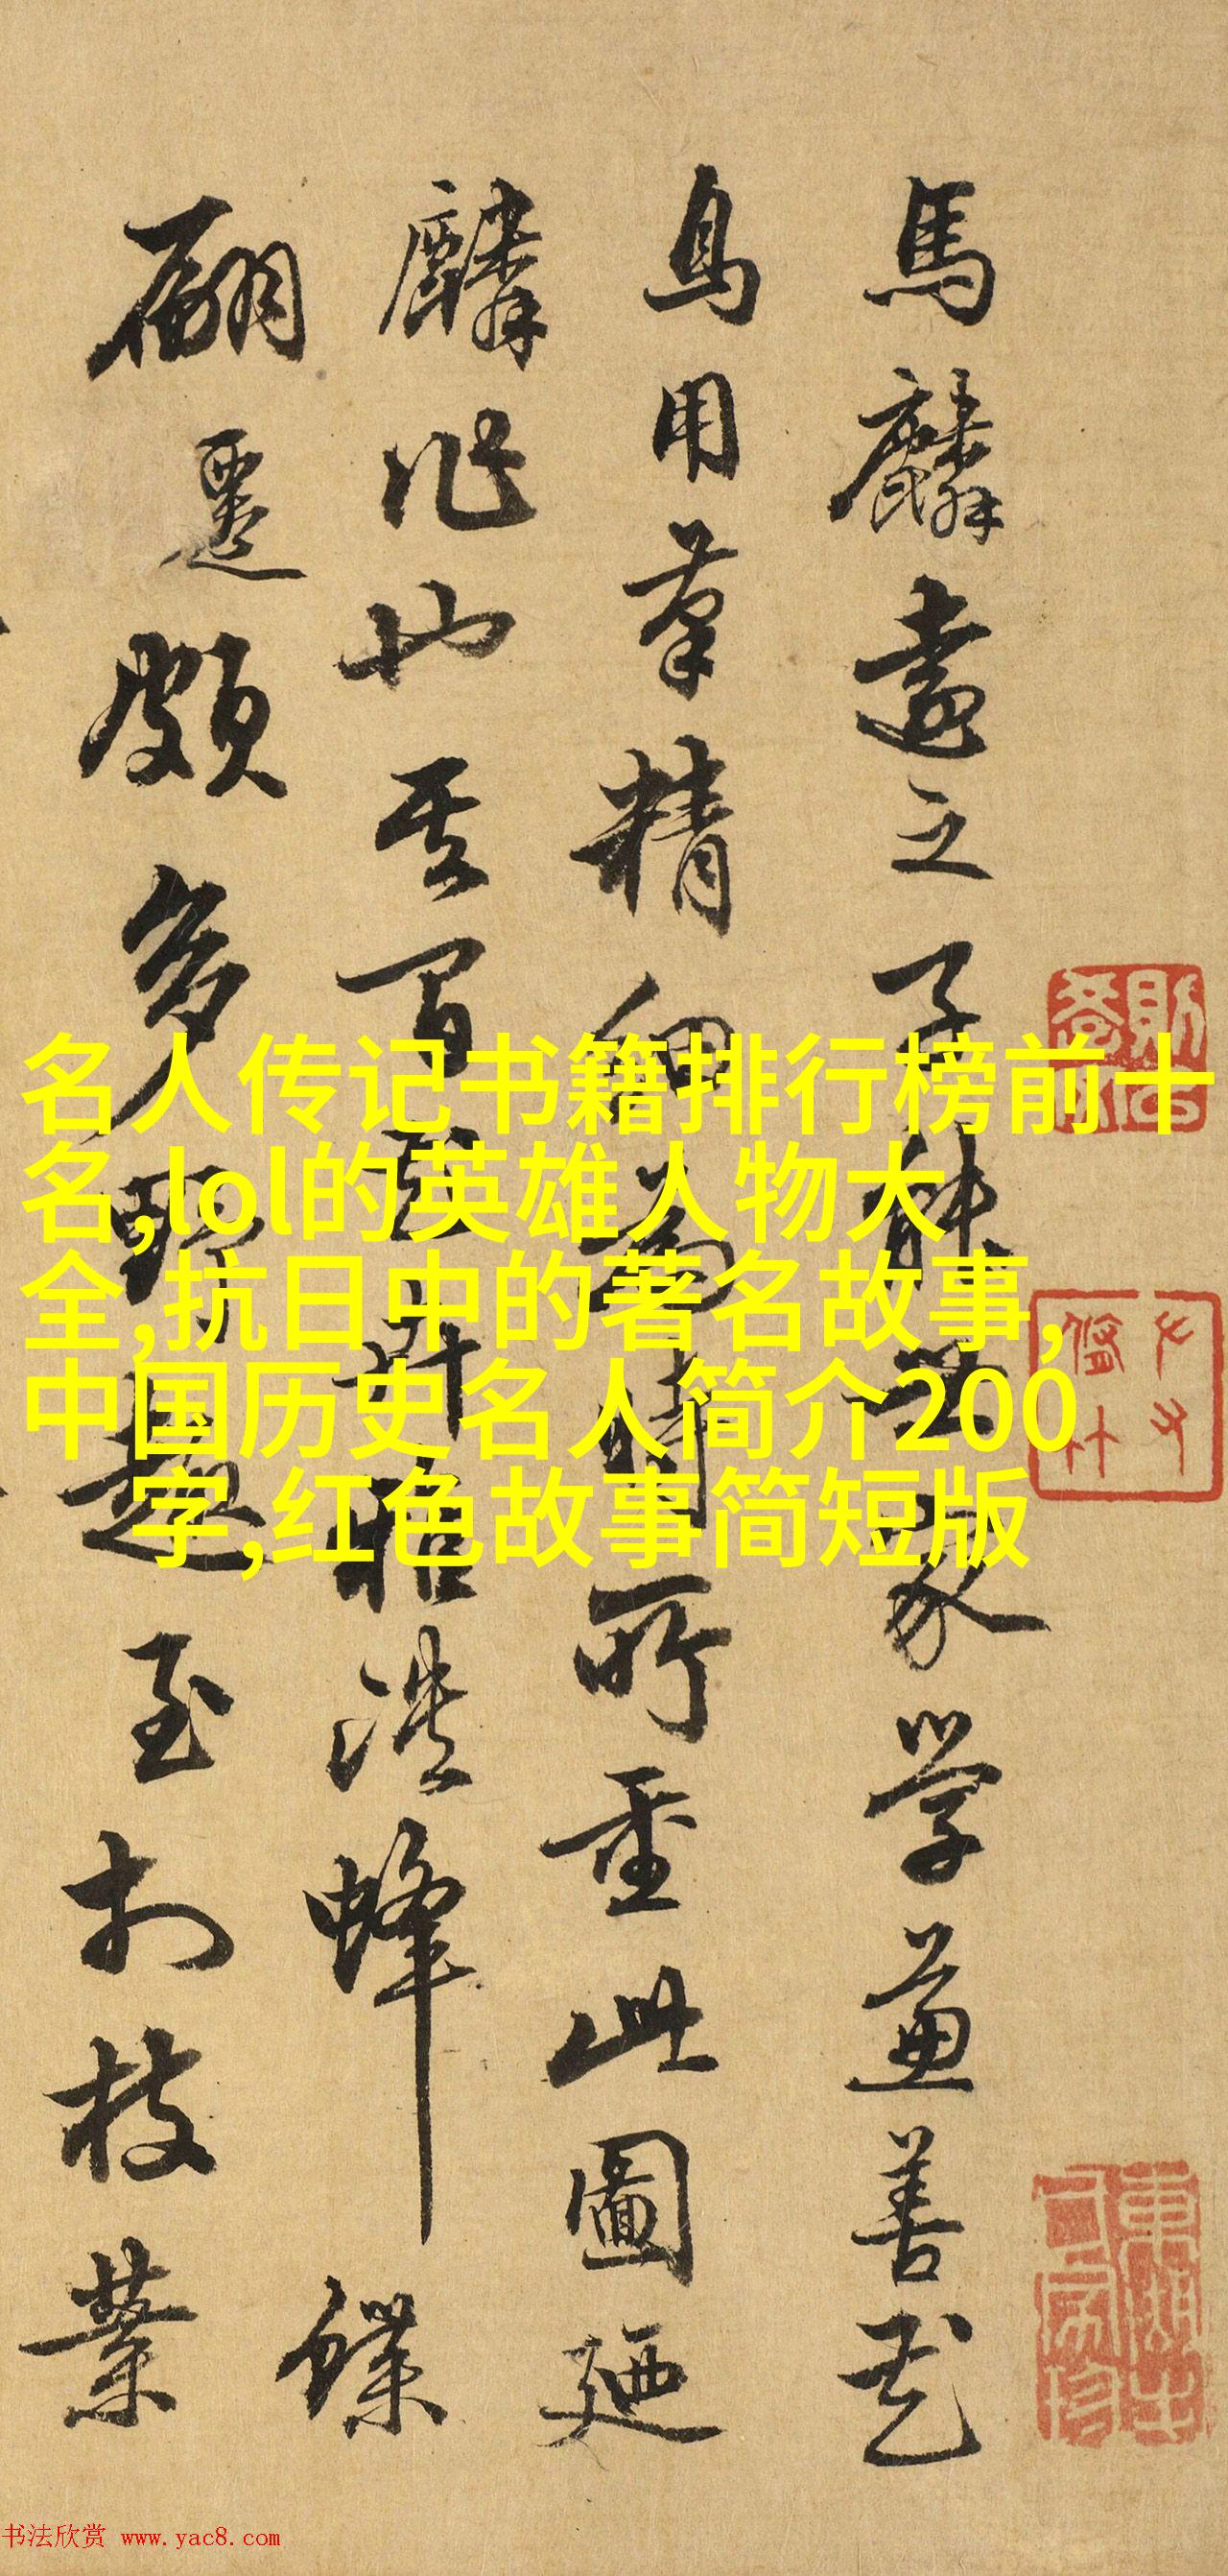 馬麟遠之子能世家學並善花
鳥用筆精細為時所重此圖廼
麟作也其間
蜂蝶
翩躚頗多野趣至於枝葉
名人传记书籍排行榜前十
名,lol的英雄人物大
全,抗日中的著名故事,
中国历史名人简介200
字,红色故事简短版
书法欣赏 www.yac8.com